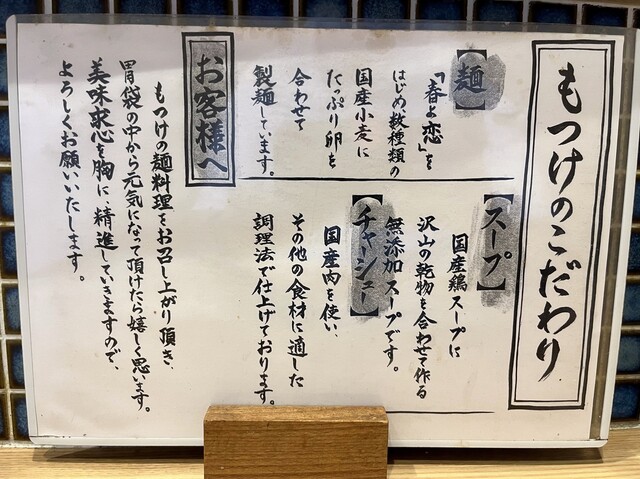 もつけのこだわり
【スープ】
国産鶏スープに
沢山の乾物を合わせて作る
無添加スープです。
【チャーシュー】
国産肉を使い、
その他の食材に適した
調理法で仕上げております。
【麺】
「春よ恋」を
はじめ数種類の
国産小麦に
たっぷり卵を
合わせて
製麺しています。
お客様へ
もつけの麺料理をお召し上がり頂き、
胃袋の中から元気になって頂けたら嬉しく思います。
美味求心を胸に、精進していきますので、
よろしくお願いいたします。